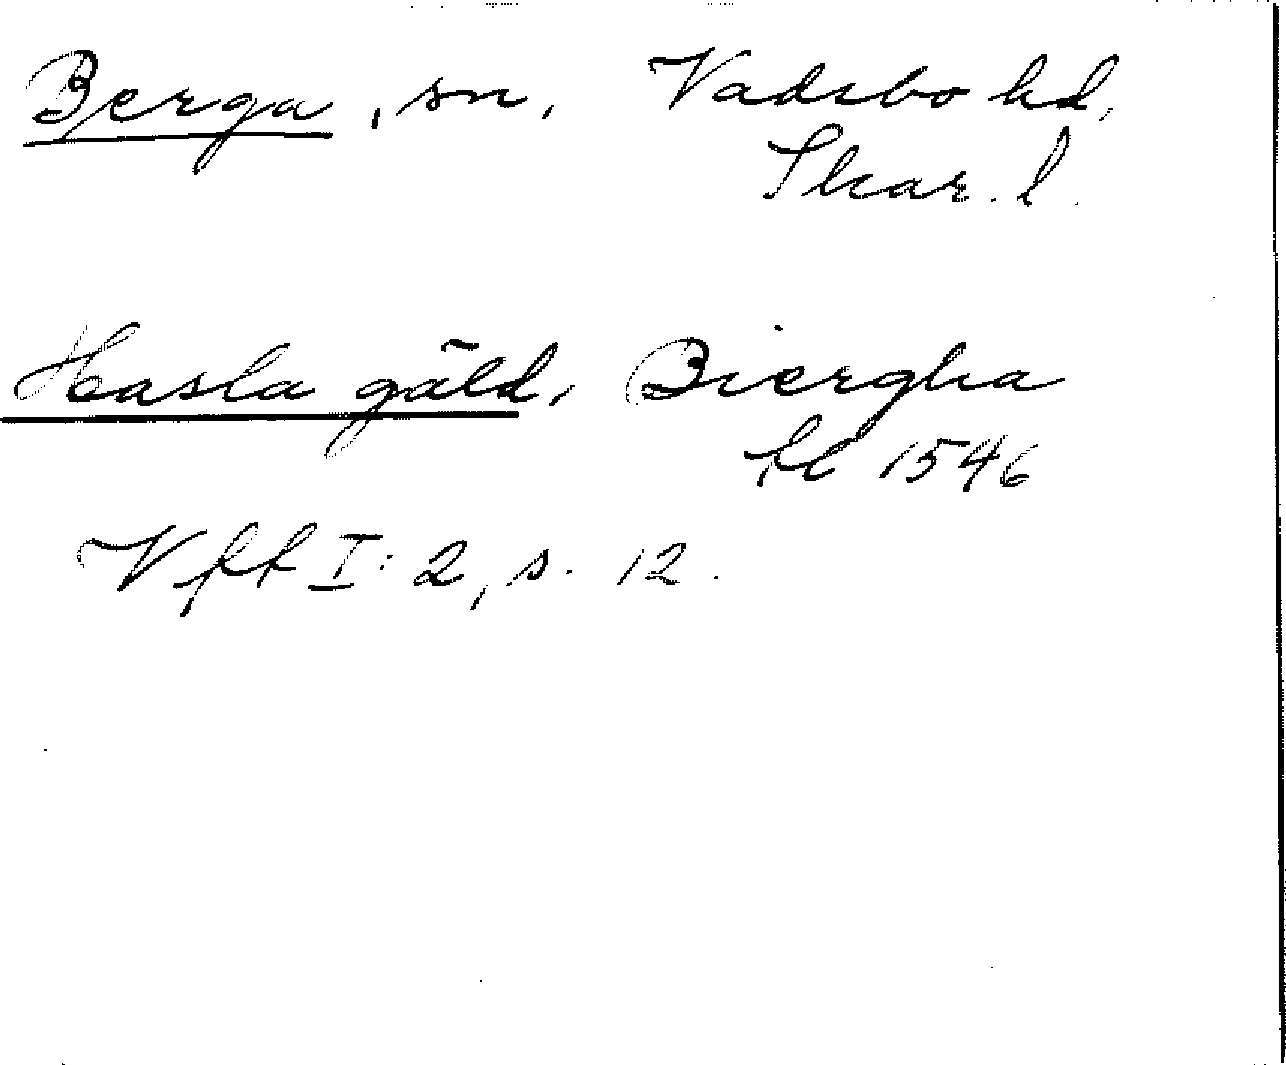 Berga, sn, Vadsbo hd,
Skar. l.
Hasla gäld, Biergha
kl 1546
Vfft I: 2, s. 12.